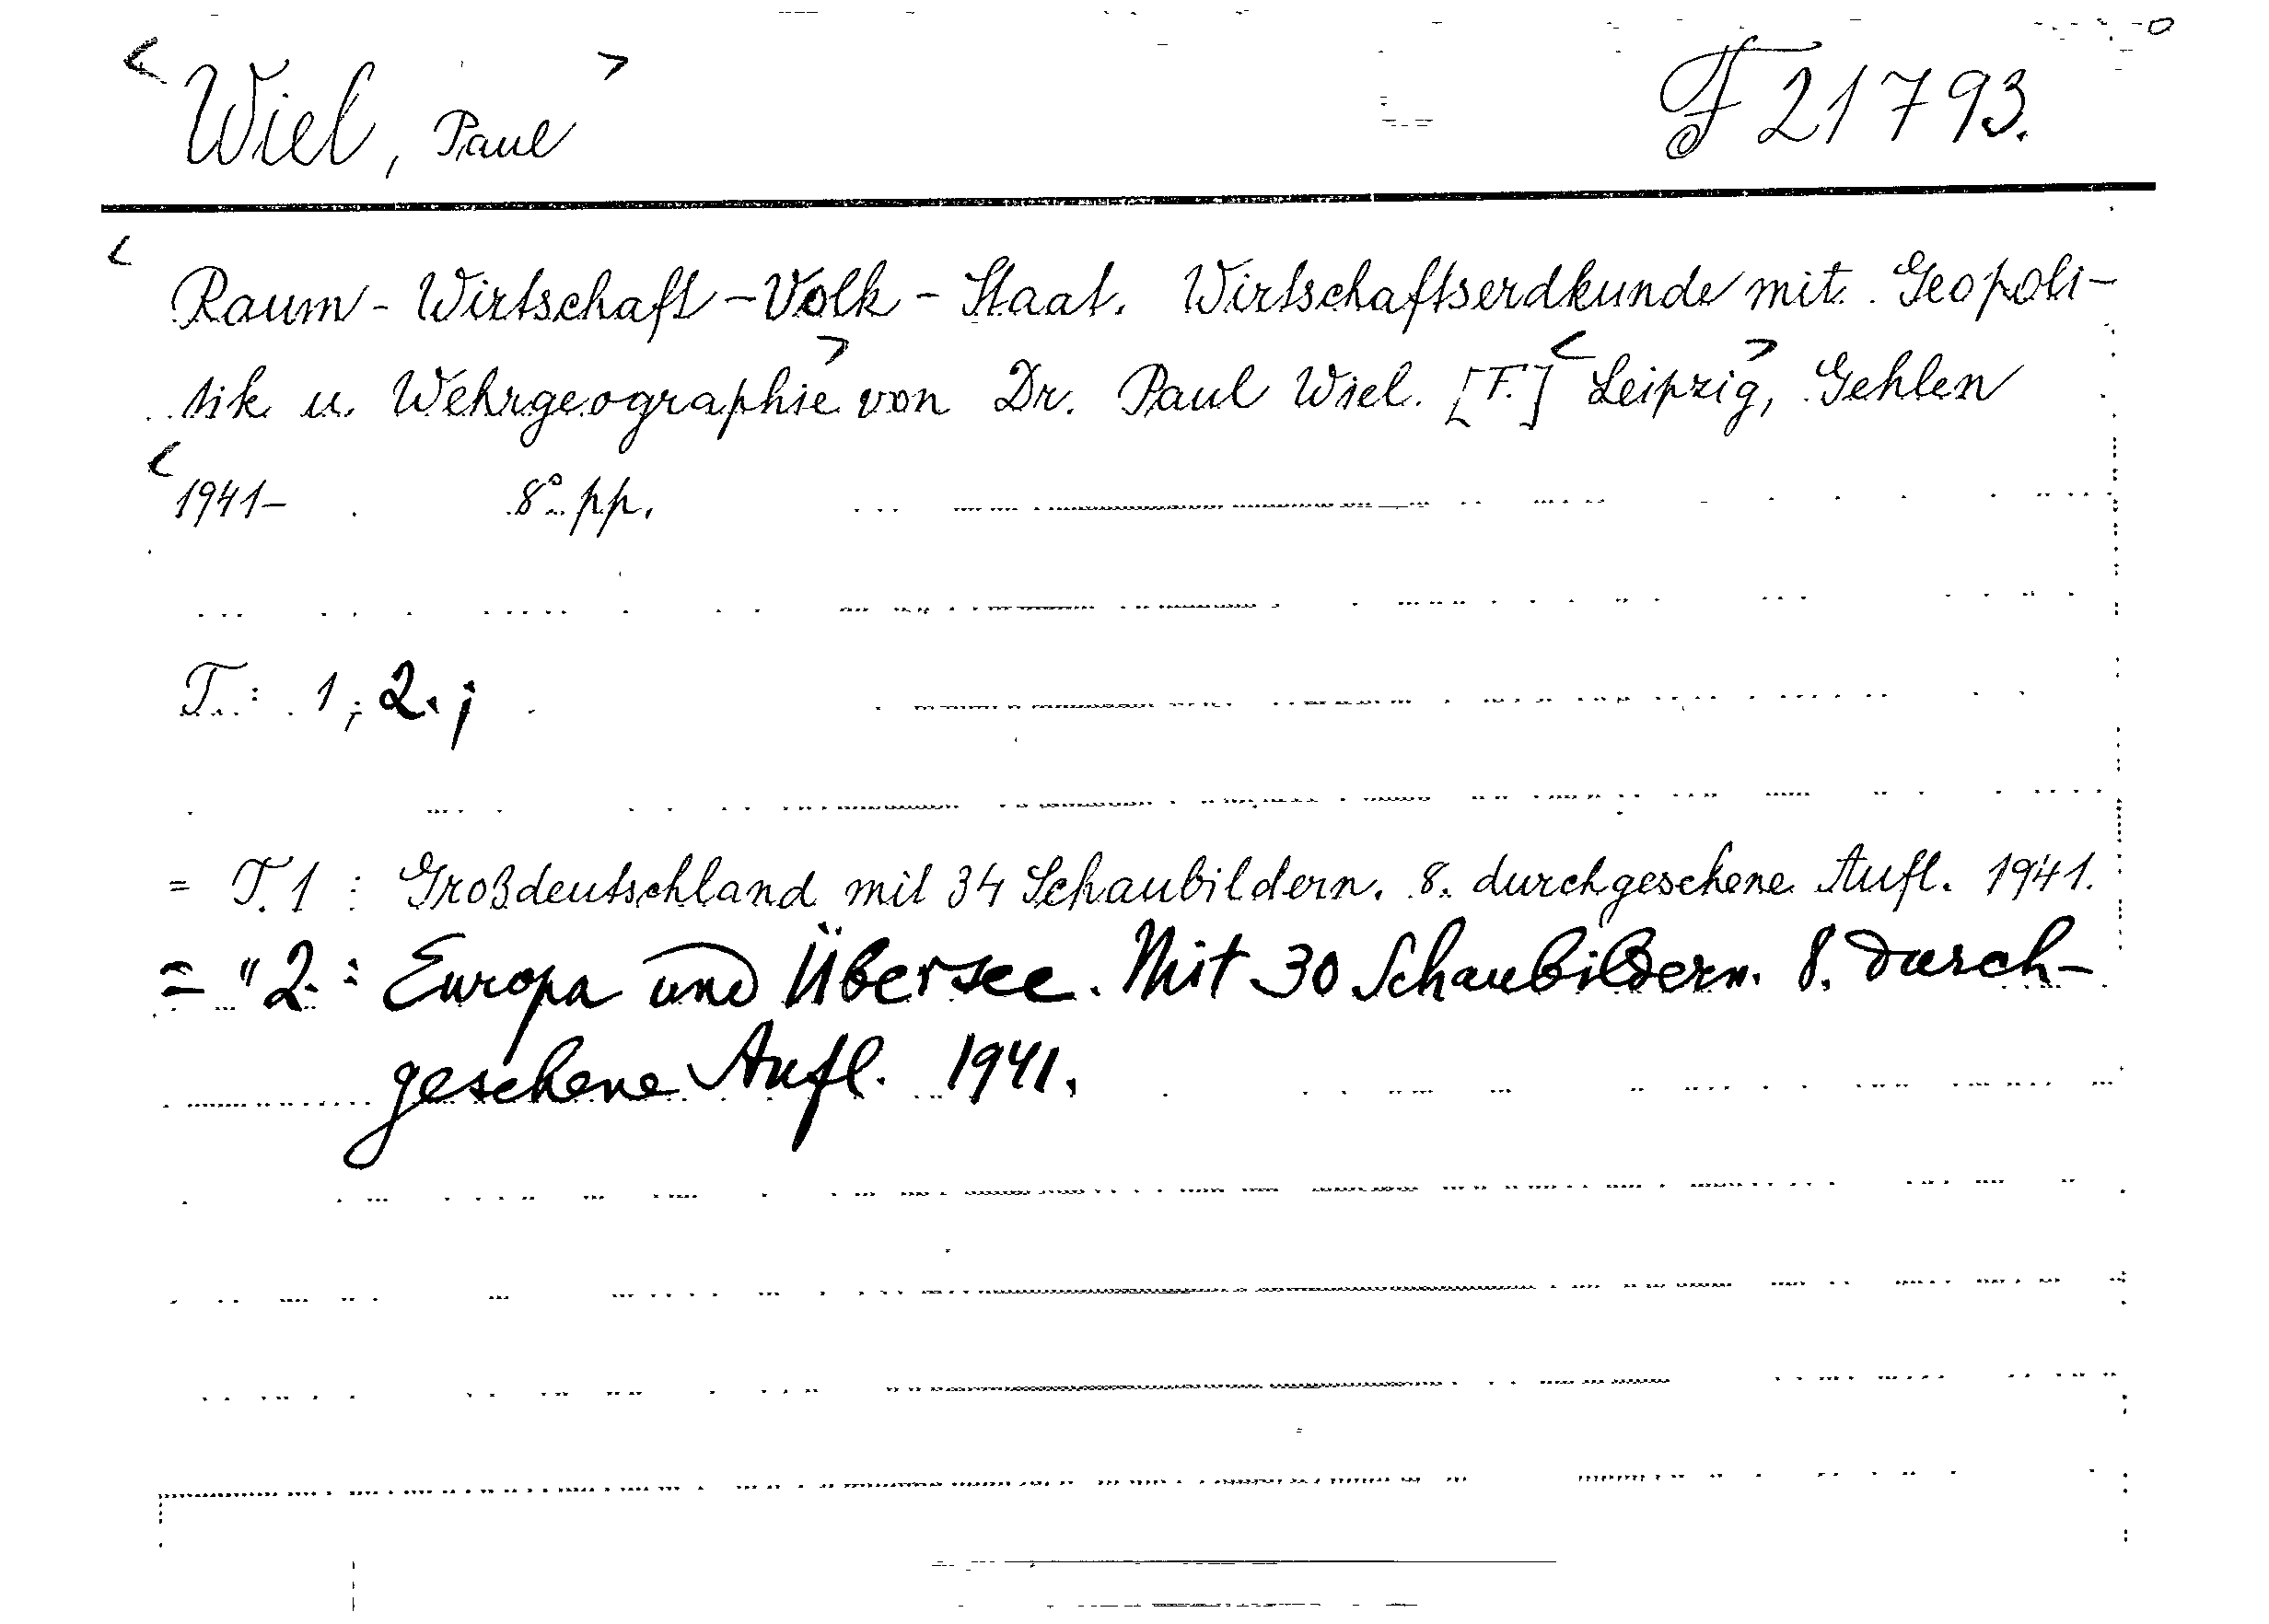 < Wiel, Paul > F 21793.
< Raum - Wirtschaft - Volk - Staat. Wirtschaftserdkunde mit Geopoli-
tik u. Wehrgeographie > von Dr. Paul Wiel. [F.] < Leipzig >, Gehlen
< 1941- 8° pp.
T.: 1; 2.;
= T. 1 : Großdeutschland mit 34 Schaubildern. 8. durchgesehene Aufl. 1941.
= " 2. : Europa und Übersee. Mit 30 Schaubildern. 8. durch-
gesehene Aufl. 1941.